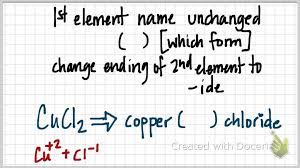 1st element name unchanged
( ) [which form]
change ending of 2nd element to
-ide
CuCl2 ⇒ copper ( ) chloride
Cu+2 + Cl-1
Created with Doceri